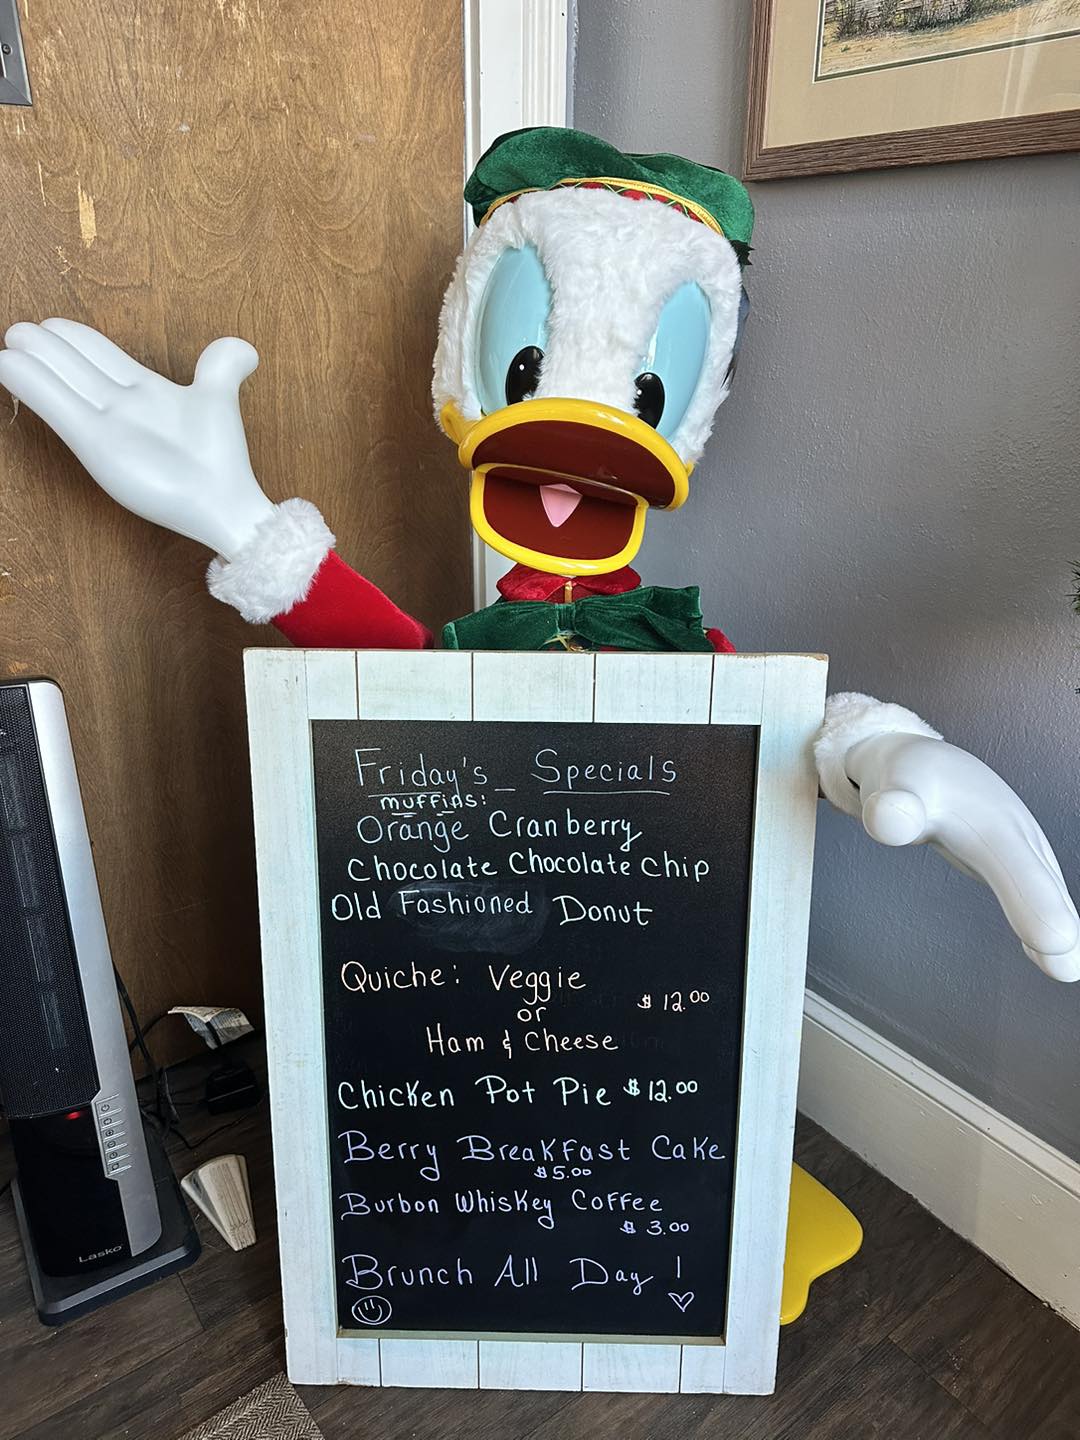 Friday's Specials
muffins:
Orange Cranberry
Chocolate Chocolate Chip
Old Fashioned Donut
Quiche: Veggie
or
$12.00
Ham & Cheese
Chicken Pot Pie $12.00
Berry Breakfast Cake
$5.00
Burbon Whiskey Coffee
$3.00
Brunch All Day!
Lasko